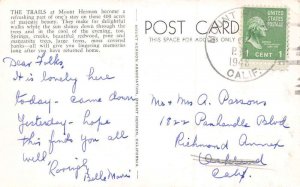 THE TRAILS at Mount Hermon become a
refreshing part of one's stay on these 400 acres
of scenic beauty. They make for delightful
walks the sun shines down through the
trees and in the cool of the evening, too.
Springs, creeks, beautiful redwood, pine and
manzanita trees, large ferns, moss covered
banks—all will give you lingering memories
long after you have returned home.
POST CARD
THIS SPACE FOR ADDRESS ONLY
1 CENT
CALIF.
Dear Folks,
It is lovely here
today - came down
yesterday - hope
this finds you all
well.
Mr + Mrs A. Parsons
1022 Panhandle Blvd
Richmond Annex
Oakland
Calif.